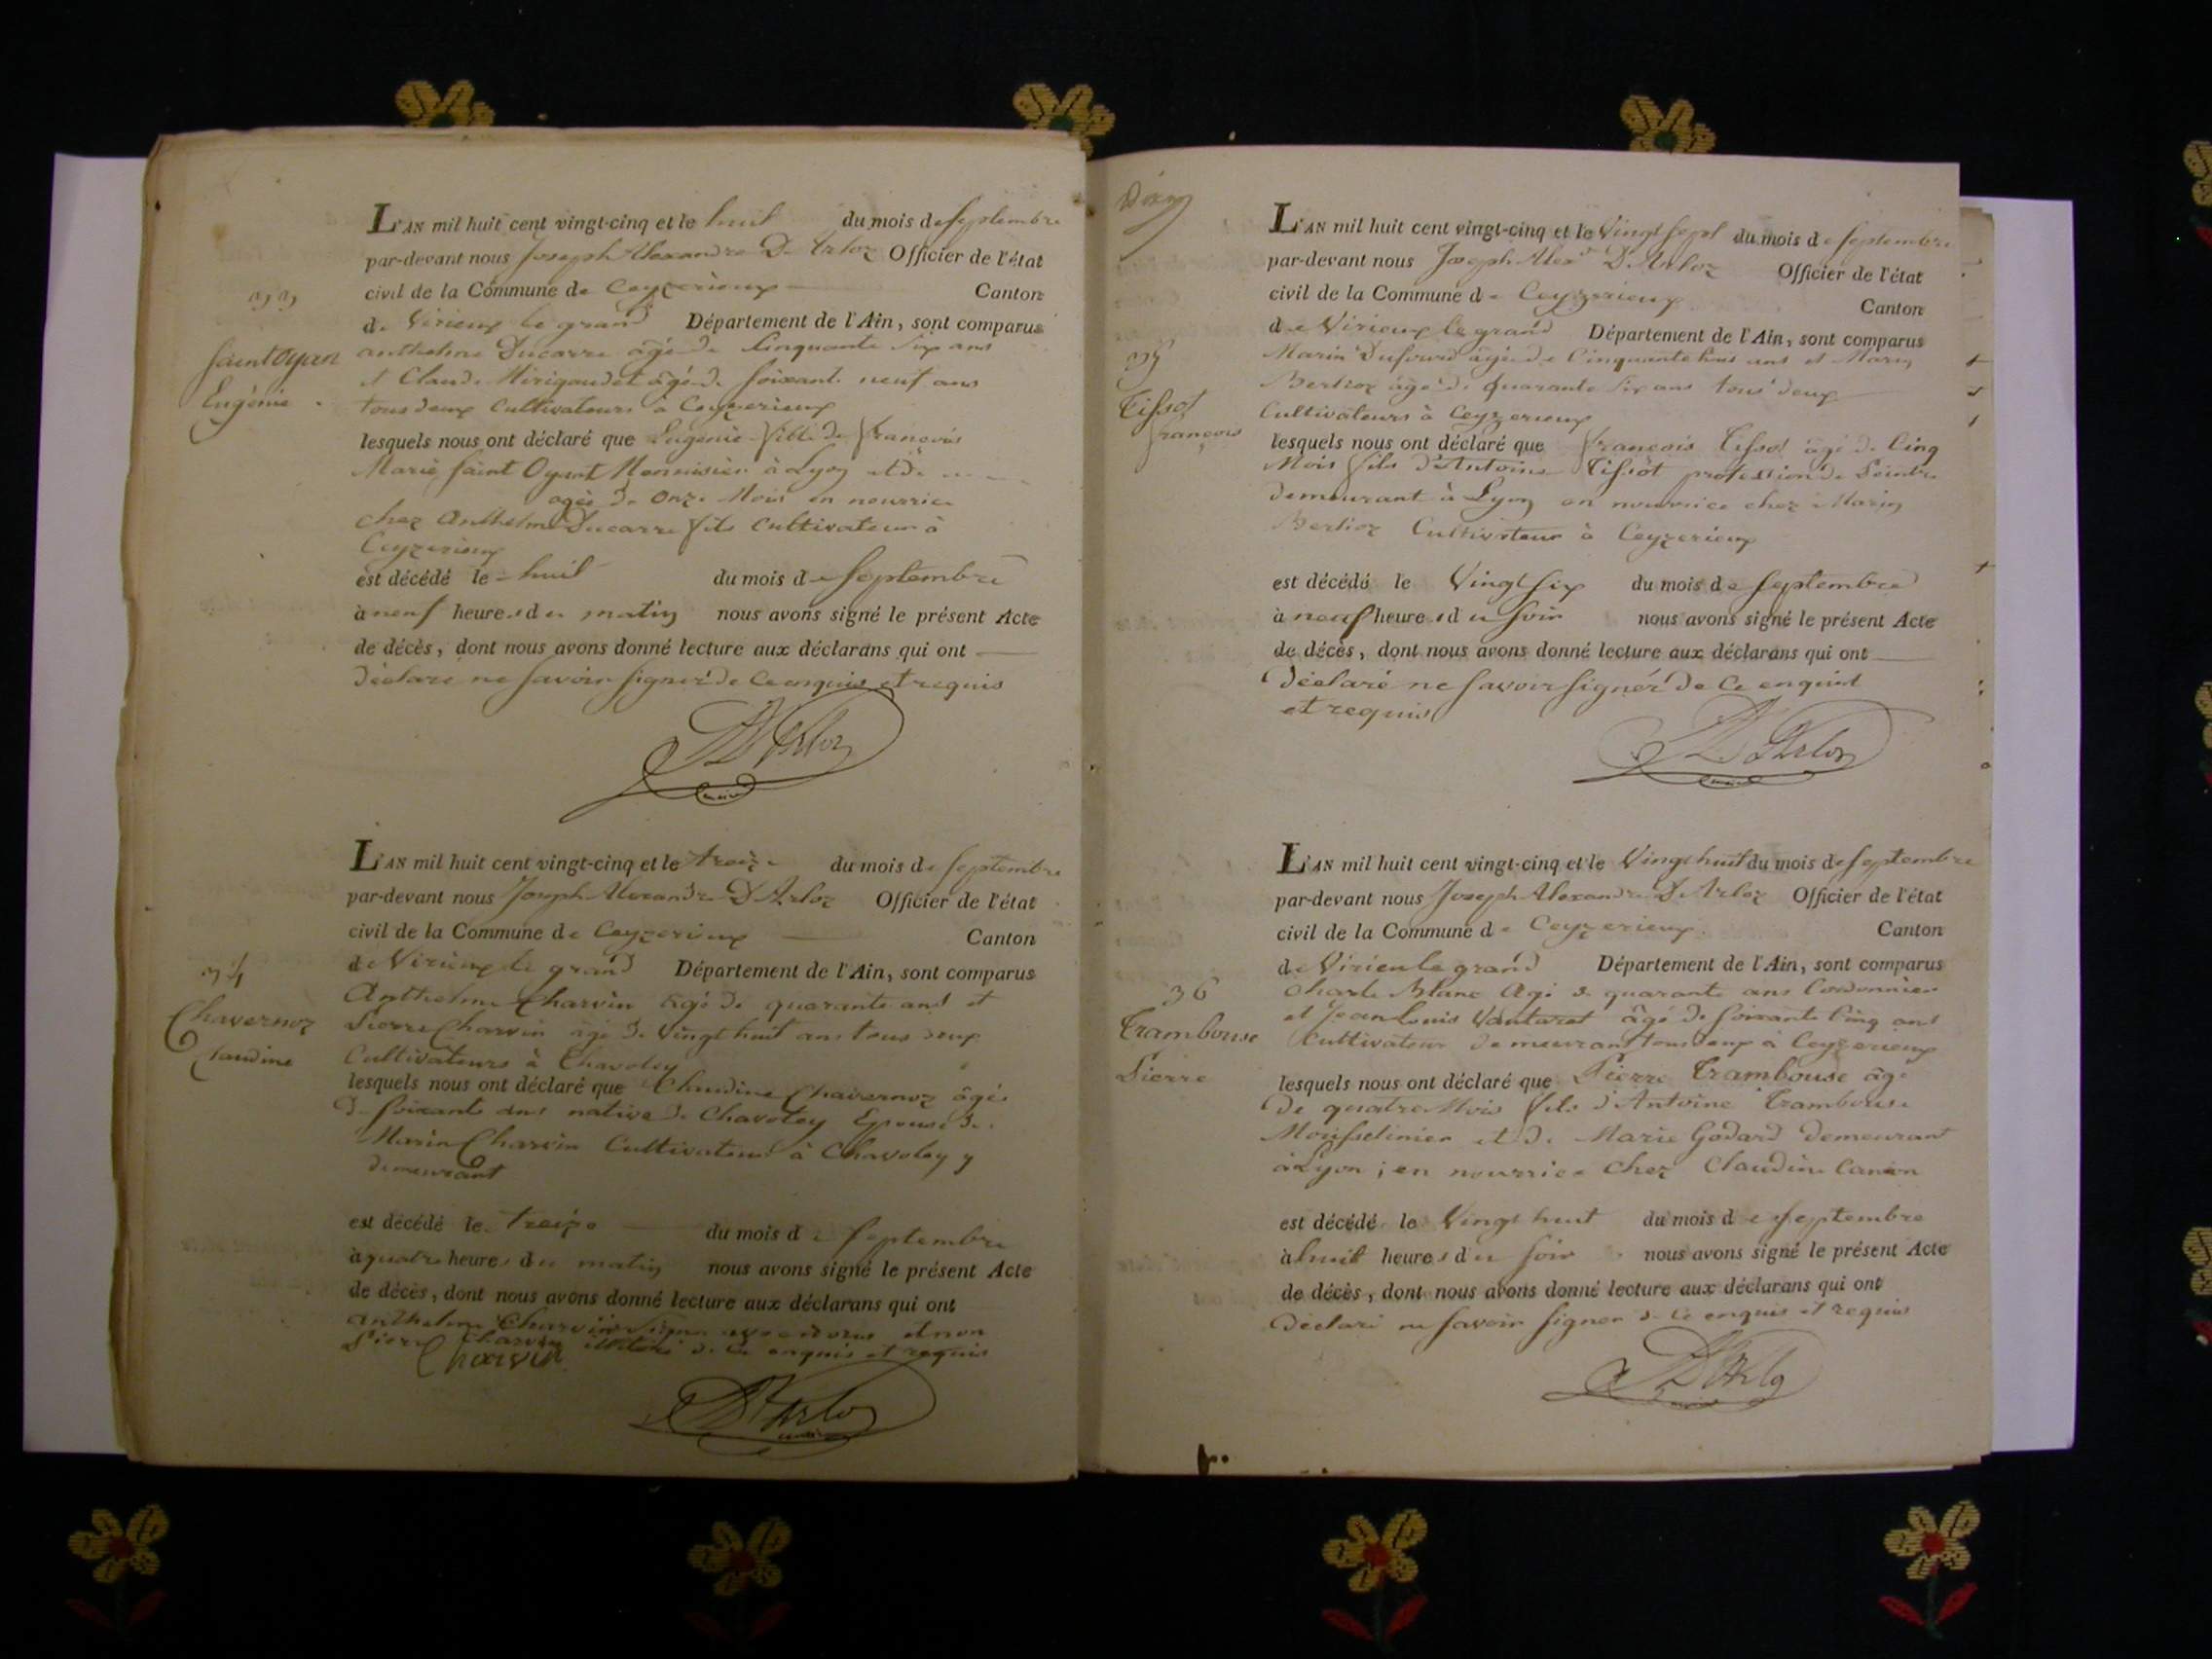 33
Saint Oyan
Eugénie
L'AN mil huit cent vingt-cinq et le huit du mois de Septembre
par-devant nous Joseph Alexandre D. Arloz Officier de l'état
civil de la Commune de Ceyzerieux Canton
de Virieux le grand Département de l'Ain, sont comparus
anthelme Ducarre âgé de Cinquante Six ans
et Claude Mirigaudet âgé de Soixante neuf ans
tous deux Cultivateurs à Ceyzerieux
lesquels nous ont déclaré que Eugénie fille de françois
Marie Saint Oyant Menuisier à Lyon et de
agée de Onze Mois en nourrice
chez Anthelme Ducarre fils Cultivateur à
Ceyzerieux
est décédé le huit du mois de Septembre
à neuf heures du matin nous avons signé le présent Acte
de décès, dont nous avons donné lecture aux déclarans qui ont
déclaré ne savoir signer de ce enquis et requis
D'Arloz
maire
34
Chavernoz
Claudine
L'AN mil huit cent vingt-cinq et le treize du mois de Septembre
par-devant nous Joseph Alexandre D'Arloz Officier de l'état
civil de la Commune de Ceyzerieux Canton
de Virieux le grand Département de l'Ain, sont comparus
Anthelme Charvin âgé de quarante ans et
Pierre Charvin âgé de Vingt huit ans tous deux
Cultivateurs à Chavoley
lesquels nous ont déclaré que Claudine Chavernoz âgée
de Soixante ans native de Chavoley Epouse de
Marin Charvin Cultivateur à Chavoley y
demeurant
est décédé le treize du mois de Septembre
à quatre heures du matin nous avons signé le présent Acte
de décès, dont nous avons donné lecture aux déclarans qui ont
anthelme Charvin Signé avec nous et non
Pierre Charvin de ce enquis et requis
Charvin
D'Arloz
maire
35
Tissot
françois
L'AN mil huit cent vingt-cinq et le Vingt Sept du mois de Septembre
par-devant nous Joseph Alex.d D. Arloz Officier de l'état
civil de la Commune de Ceyzerieux Canton
de Virieux le grand Département de l'Ain, sont comparus
Marin Dufourd âgé de Cinquante ans et Marin
Berlioz âgé de quarante Six ans tous deux
Cultivateurs à Ceyzerieux
lesquels nous ont déclaré que françois Tissot âgé de Cinq
Mois fils d'Antoine Tissot profession de Peintre
demeurant à Lyon en nourrice chez Marin
Berlioz Cultivateur à Ceyzerieux
est décédé le Vingt Six du mois de Septembre
à neuf heures du Soir nous avons signé le présent Acte
de décès, dont nous avons donné lecture aux déclarans qui ont
déclaré ne Savoir Signer de Ce enquit
et requis
D'Arloz
maire
36
Trambouse
Pierre
L'AN mil huit cent vingt-cinq et le Vingt huit du mois de Septembre
par-devant nous Joseph Alexandre D. Arloz Officier de l'état
civil de la Commune de Ceyzerieux Canton
de Virieu le grand Département de l'Ain, sont comparus
Charle Blanc Agé de quarante ans Cordonnier
et Jean Louis Vautaret âgé de Soixante Cinq ans
Cultivateur demeurant tous deux à Ceyzerieux
lesquels nous ont déclaré que Pierre Trambouse âgé
De quatre Mois fils d'Antoine Trambouse
Mousselinier et de Marie Godard demeurant
à Lyon ; en nourrice chez Claudine Canion
est décédé le Vingt huit du mois de Septembre
à huit heures du Soir nous avons signé le présent Acte
de décès, dont nous avons donné lecture aux déclarans qui ont
Déclaré ne Savoir Signer de Ce enquis et requis
D'Arloz
maire